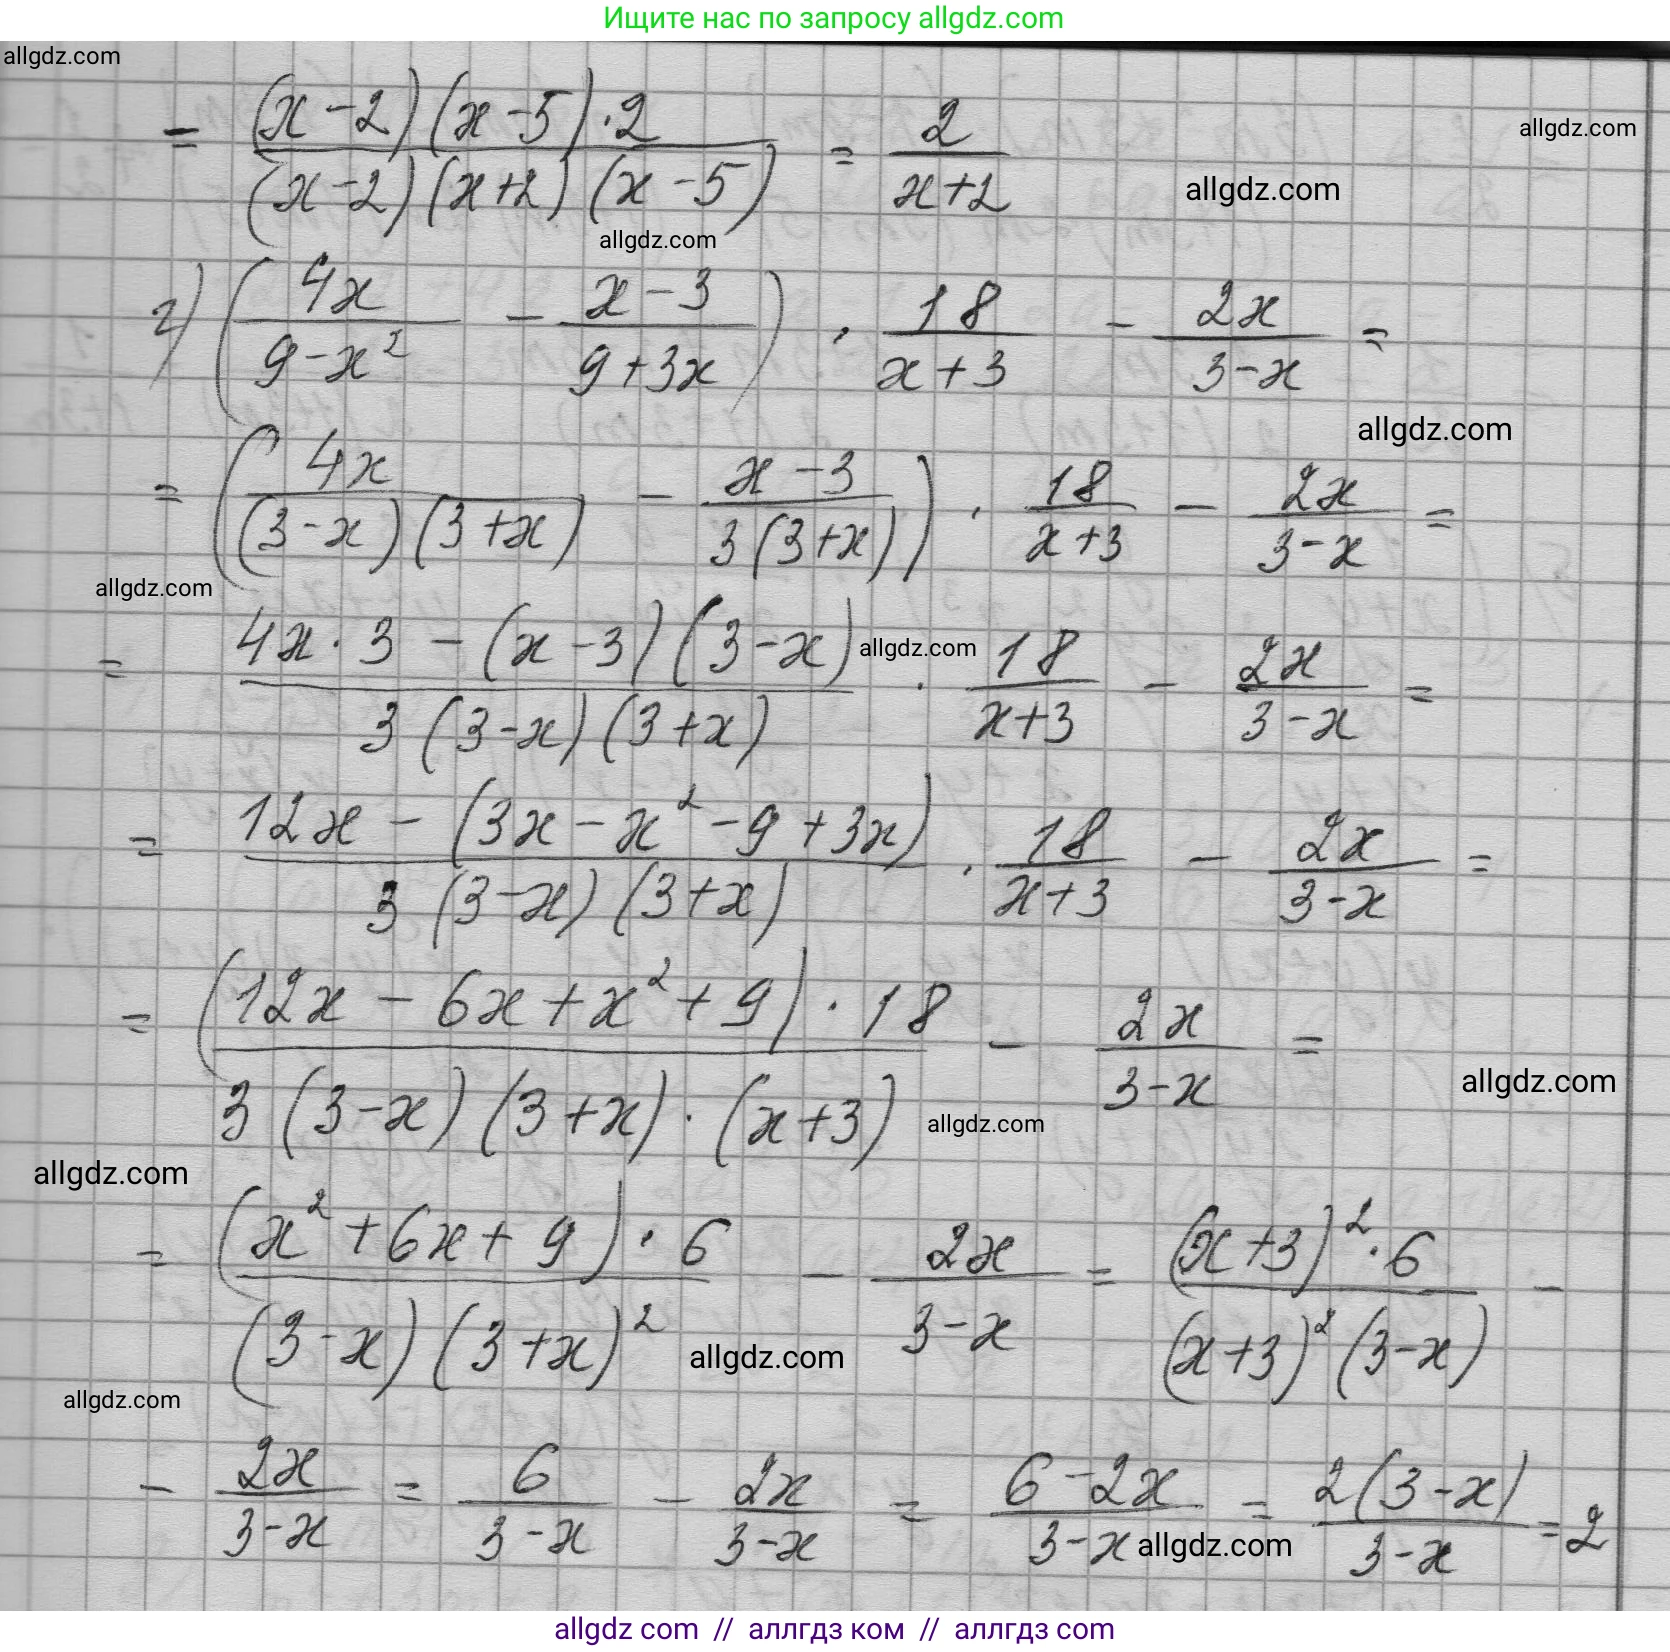 Ищите нас по запросу allgdz.com
allgdz.com
= ((x-2)(x-5)·2)/((x-2)(x+2)(x-5)) = 2/(x+2)
allgdz.com
allgdz.com
allgdz.com
г) (4x/(9-x²) - (x-3)/(9+3x)) · 18/(x+3) - 2x/(3-x) =
allgdz.com
= (4x/((3-x)(3+x)) - (x-3)/(3(3+x))) · 18/(x+3) - 2x/(3-x) =
allgdz.com
= (4x·3-(x-3)(3-x))/(3(3-x)(3+x)) · 18/(x+3) - 2x/(3-x) =
allgdz.com
= (12x-(3x-x²-9+3x))/(3(3-x)(3+x)) · 18/(x+3) - 2x/(3-x) =
= ((12x-6x+x²+9)·18)/(3(3-x)(3+x)·(x+3)) - 2x/(3-x) =
allgdz.com
allgdz.com
allgdz.com
= ((x²+6x+9)·6)/((3-x)(3+x)²) - 2x/(3-x) = ((x+3)²·6)/((x+3)²(3-x)) -
allgdz.com
allgdz.com
- 2x/(3-x) = 6/(3-x) - 2x/(3-x) = (6-2x)/(3-x) = (2(3-x))/(3-x) = 2
allgdz.com
allgdz com // аллгдз ком // аллгдз com